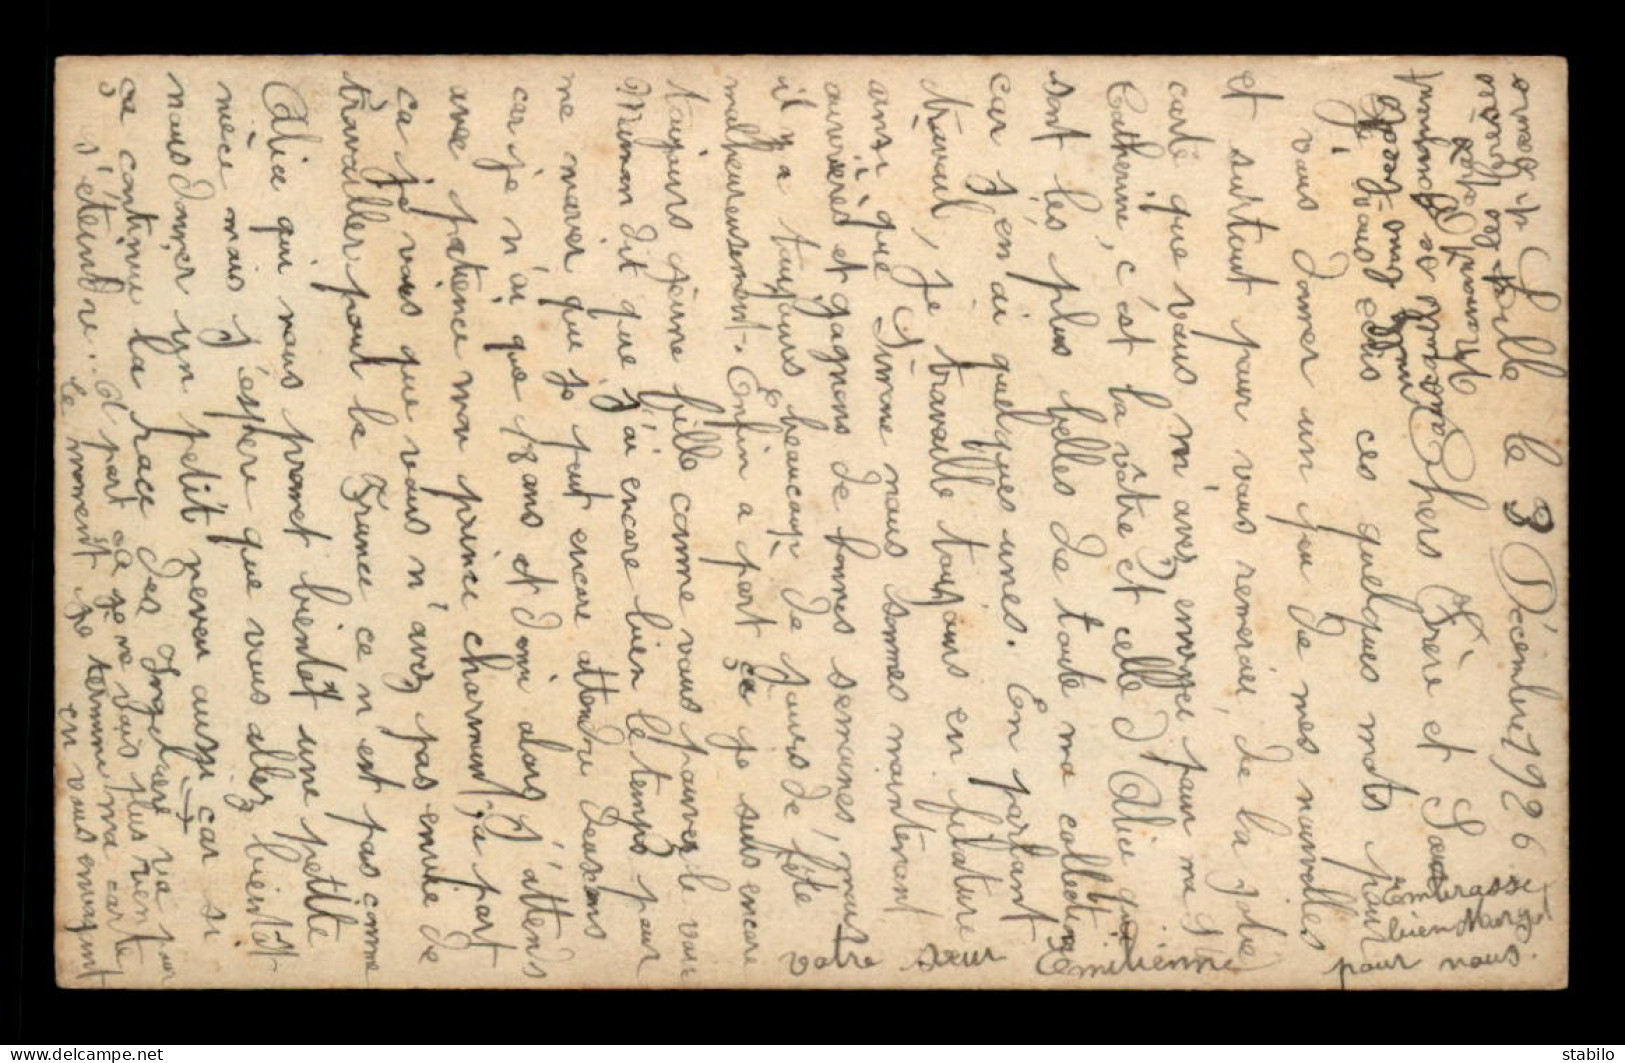 Lille le 3 Décembre 1926
Chers Frère et Soeur
Je vous écris ces quelques mots pour
vous donner un peu de mes nouvelles
et surtout pour vous remercier de la jolie
carte que vous m'avez envoyé pour ma Ste
Catherine, c'est la vôtre et celle d'Alice qui
sont les plus belles de toute ma collection
car j'en ai quelques unes. En parlant
travail, je travaille toujours en filature
ansi que Simone nous sommes maintenant
ouvrières et gagnons de bonnes semaines, mais
il y a toujours beaucoup de jours de fête
malheureusement. Enfin a part ça je suis encore
toujours jeune fille comme vous pouvez le voir
Maman dit que j'ai encore bien le temps pour
me marier que je peut encore attendre deux ans
car je n'ai que 18 ans et demi alors j'attends
avec patience mon prince charmant, a part
ça je vois que vous n'avez pas envie de
travailler pour la France ce n'est pas comme
Alice qui nous promet bientôt une petite
nièce mais j'espère que vous allez bientôt
nous donner un petit neveu aussi car si
ça continue la race des va
s'éteindre. A part ça je ne vois plus rien pour
le moment je termine ma carte
en vous envoyant
votre soeur Emilienne
Embrasse
bien Margot
pour nous.
stabilo